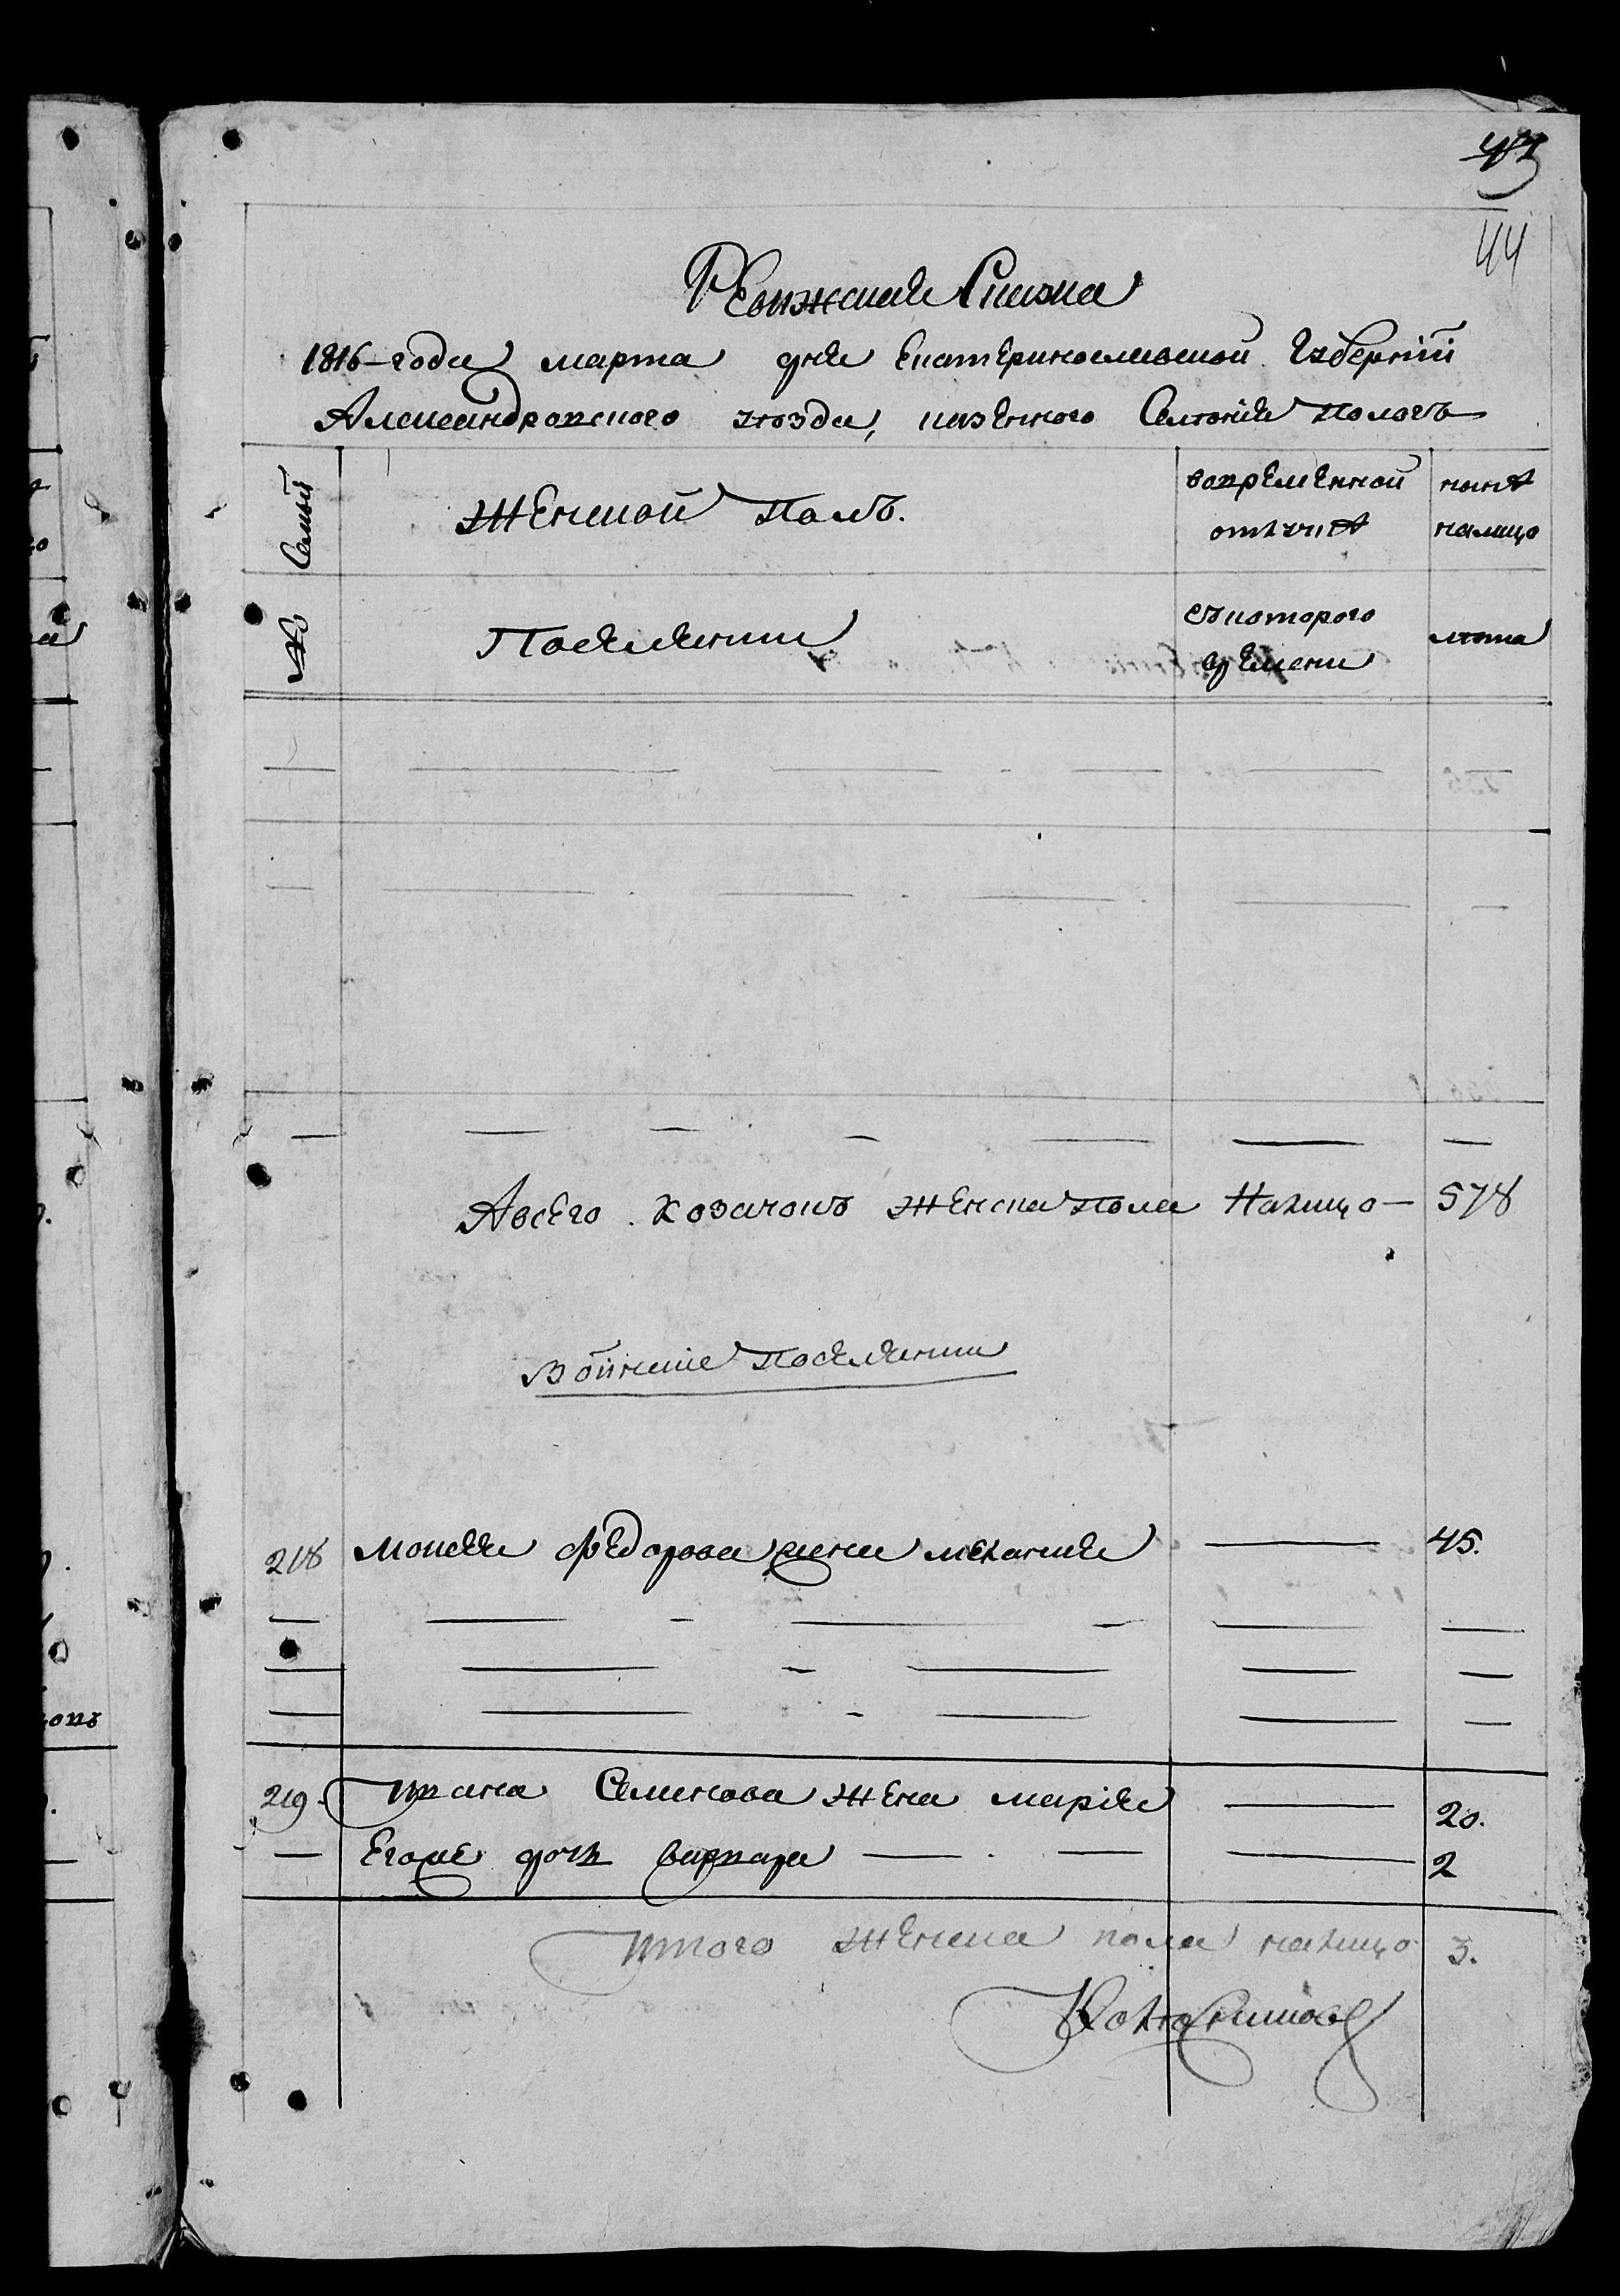 43
44
Ревижская Сказка
1816-года марта дня Екатеринославской Губернiи
Александровского уезда, казенного Селенiя пологъ
Семьи
женской Полъ.
вовременной
отлучке
ныне
налицо
№
Поселяни
съкоторого
времени
лета
Авсего козачокъ женска пола Налицо — 578
Войские Поселяни
218 моисея федорова жена мелания — 45.
219. Ивана Семенова жена марiя — 20.
— Егоже дочь варвара — 2
Итого женска пола налицо 3.